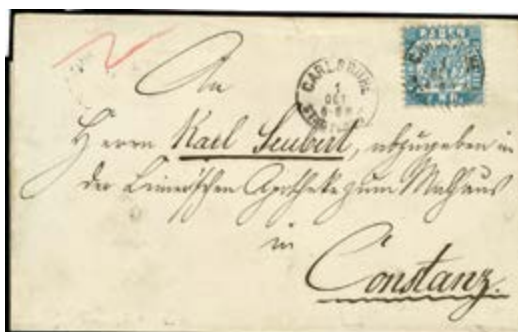 BADEN
CARLSRUHE
1
OCT
An
Herrn Karl Seubert, abzugeben in
der Leiner'schen Apotheke zum Malhaus
in
Constanz.